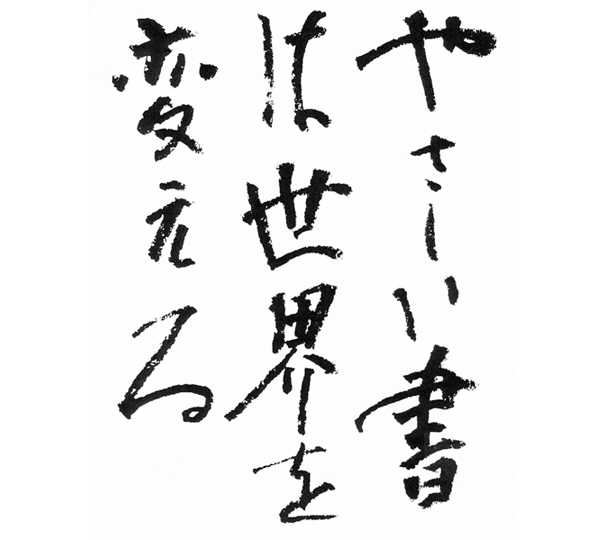 やさしい書
は世界を
変える